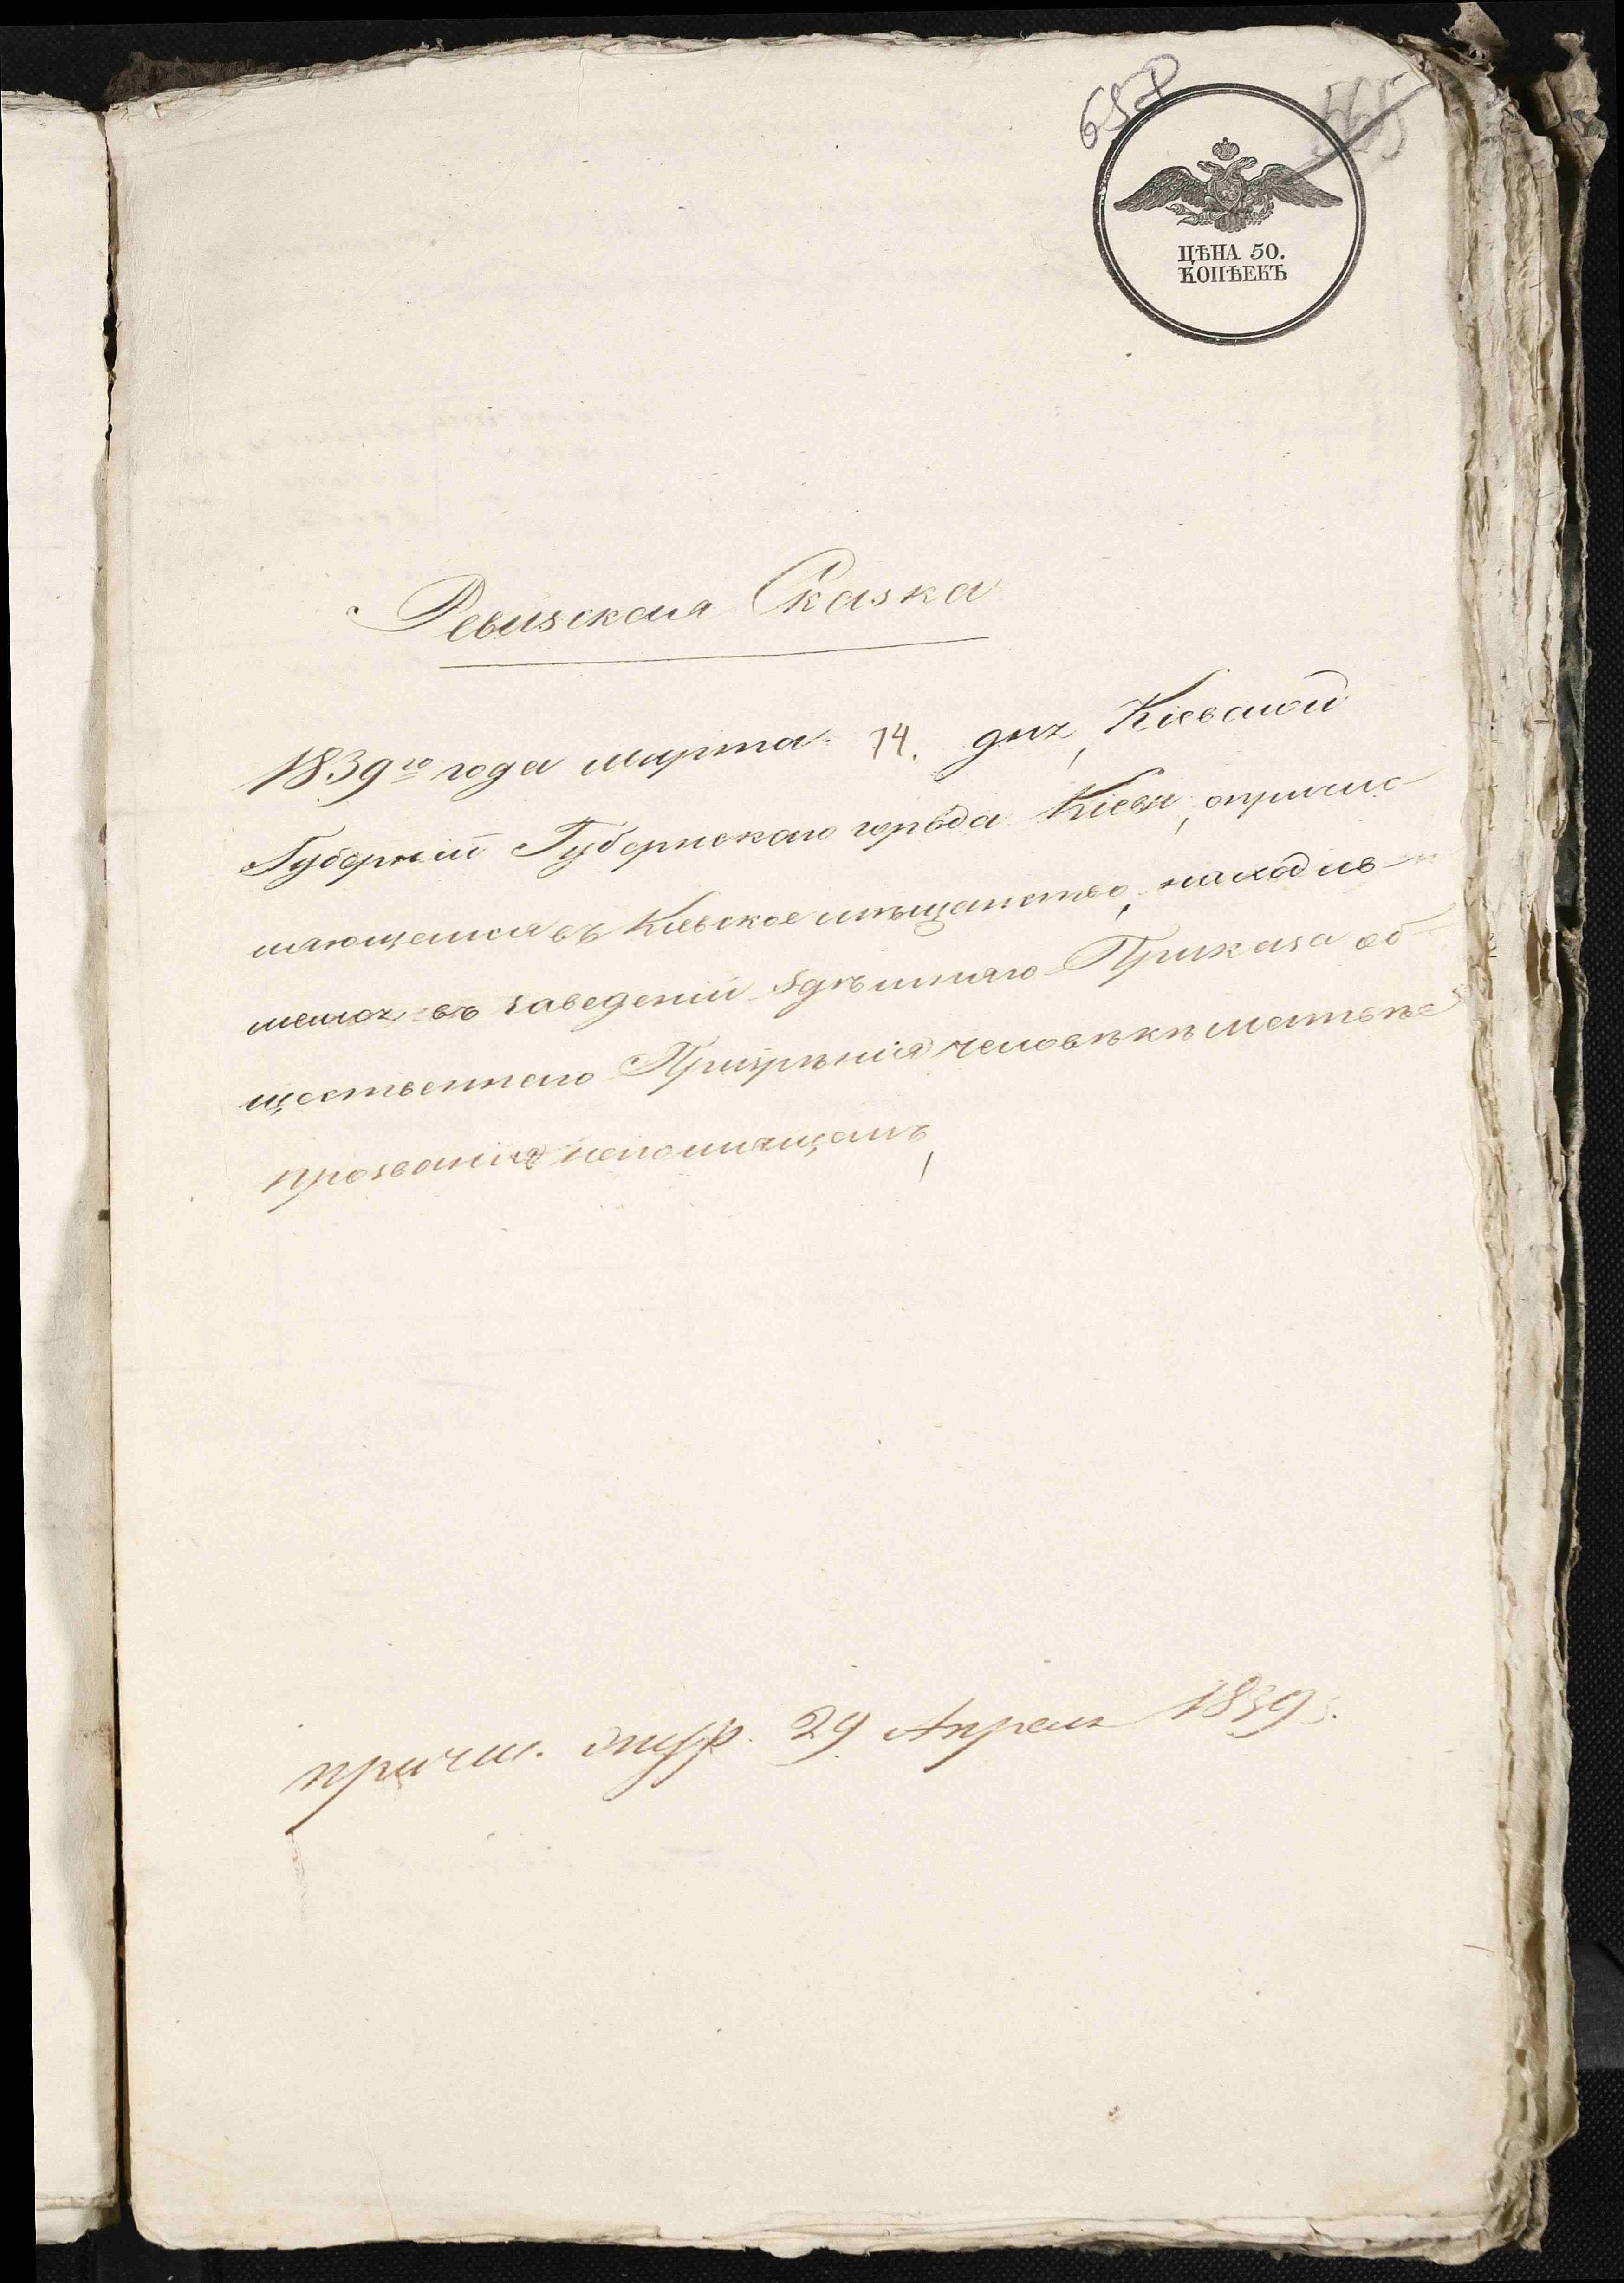 657
565
ЦѢНА 50.
КОПѢЕКЪ
Ревизская Сказка
1839го года марта 14. дня, Кіевской
Губерніи Губернскаго города Кіева, опричис-
ляющемся въ Кіевское мѣщанство, находив-
шемся въ заведеніи здѣшняго Приказа об-
щественнаго Призрѣнія человѣкѣ Матвѣѣ
прозванія непомнящемъ,
причис. 29 Апреля 1839